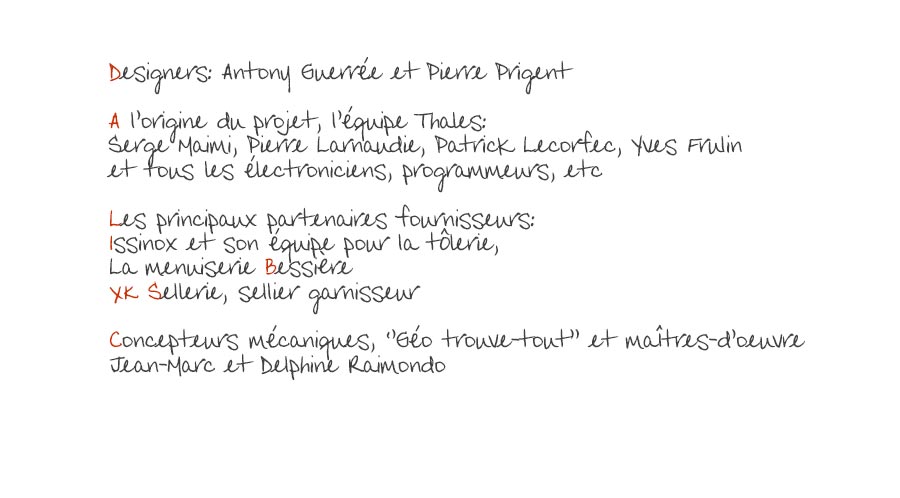 Designers: Antony Guerrée et Pierre Prigent
A l'origine du projet, l'équipe Thales:
Serge Maimi, Pierre Larnaudie, Patrick Lecorfec, Yves Frulin
et tous les électroniciens, programmeurs, etc
Les principaux partenaires fournisseurs:
Issinox et son équipe pour la tôlerie,
La menuiserie Bessière
YK Sellerie, sellier garnisseur
Concepteurs mécaniques, "Géo trouve-tout" et maîtres-d'oeuvre
Jean-Marc et Delphine Raimondo